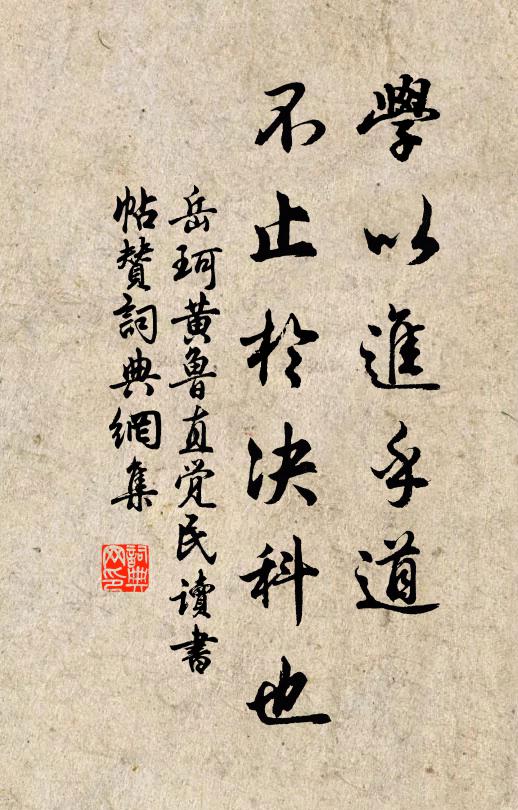 學以進乎道
不止於決科也
岳珂黄魯直觉民讀書
帖賛詞典網集
詞典网印